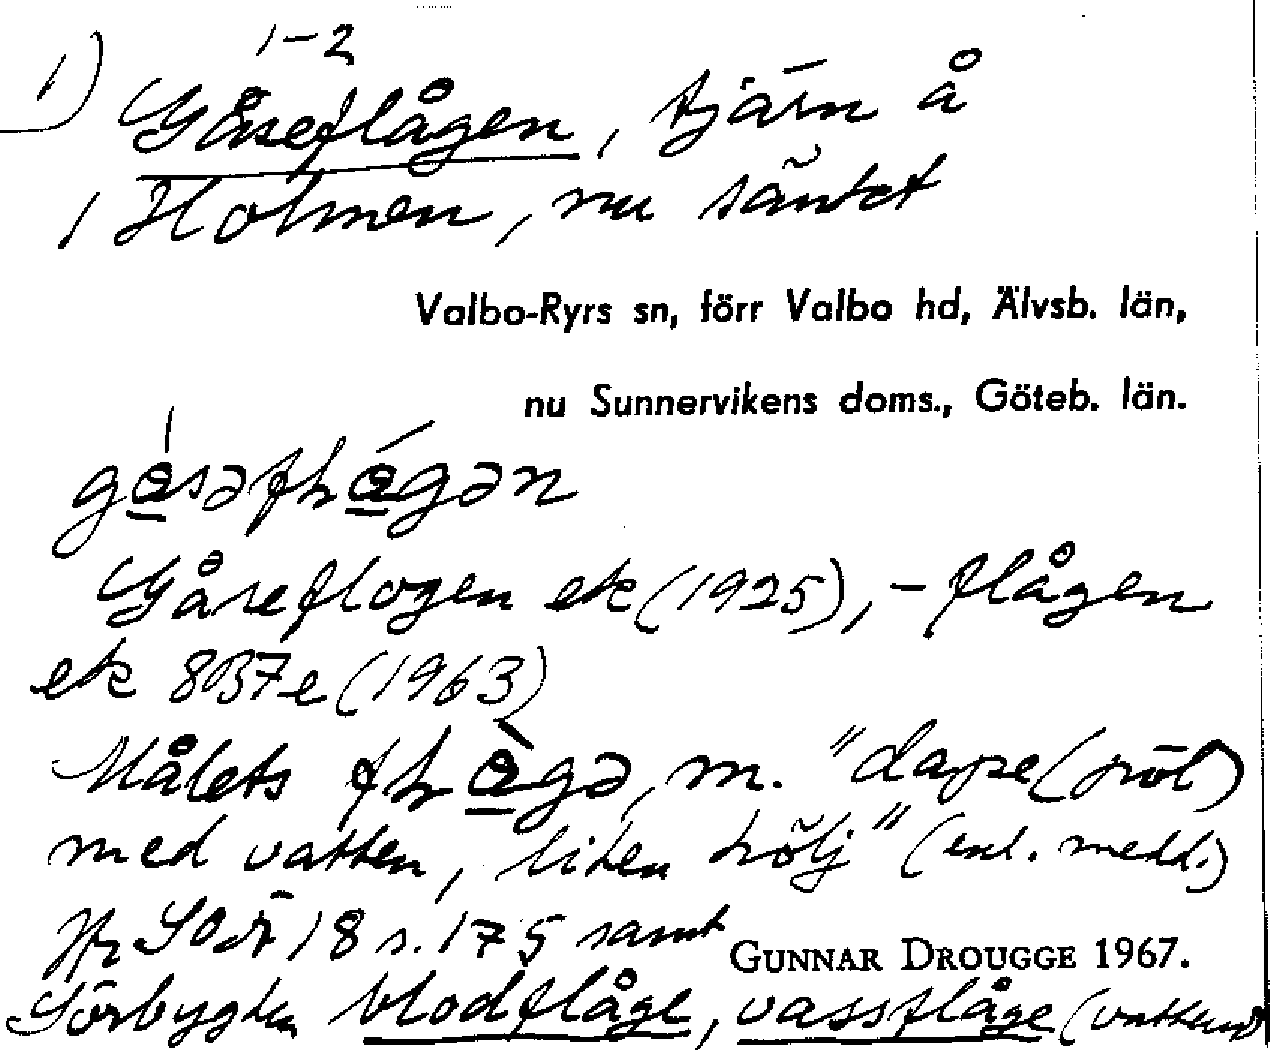 1) 1-2
Gåseflågen, tjärn å
1 Holmen, nu säntet
Valbo-Ryrs sn, förr Valbo hd, Älvsb. län,
nu Sunnervikens doms., Göteb. län.
gåsəfɫågən
Gåseflogen ek (1925), -flågen
ek 8B7e (1963)
Målets fɫågə, m. "dappe (pöl)
med vatten, liten hölj" (enl. medd.)
Jfr SOÄ 18 s. 175 samt
GUNNAR DROUGGE 1967.
Sörbygden blodflåge, vassflåge